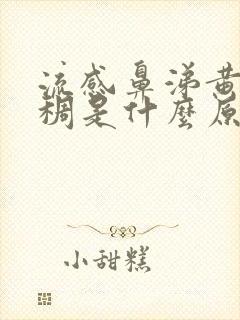 流感鼻涕黄
稠是什麼原
小甜糕